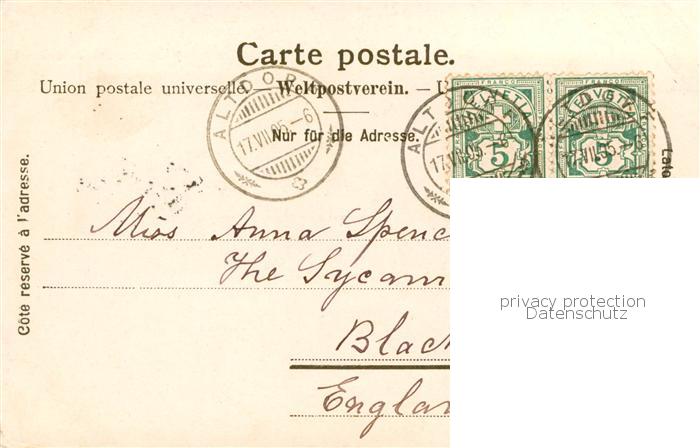 Carte postale.
Union postale universelle. — Weltpostverein. — U
Nur für die Adresse.
Côte reservé à l'adresse.
ALTDORF
17.VII.05.–6
ALT
17.VII.05
FRANCO
HELVETIA
5
FRANCO
5
VII.05.–6
Miss Anna Spenc
The Sycam
Black
Englan
privacy protection
Datenschutz